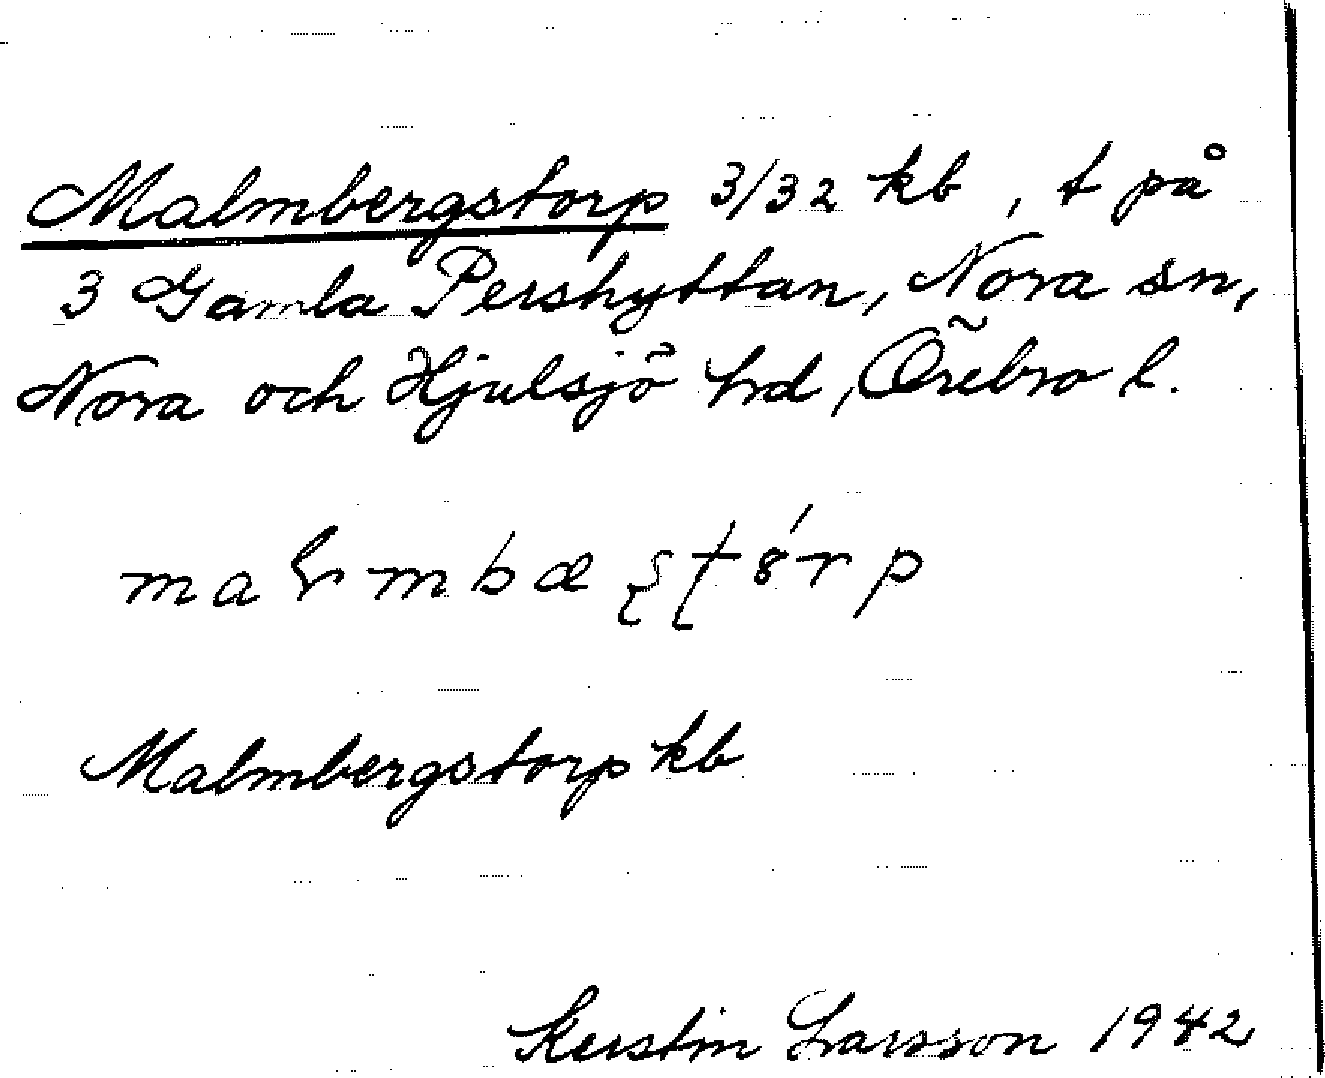 Malmbergstorp 3/32 kb, t på
3 Gamla Pershyttan, Nora sn,
Nora och Hjulsjö hrd, Örebro l.
Malmbergstorp kb
Kerstin Larsson 1942